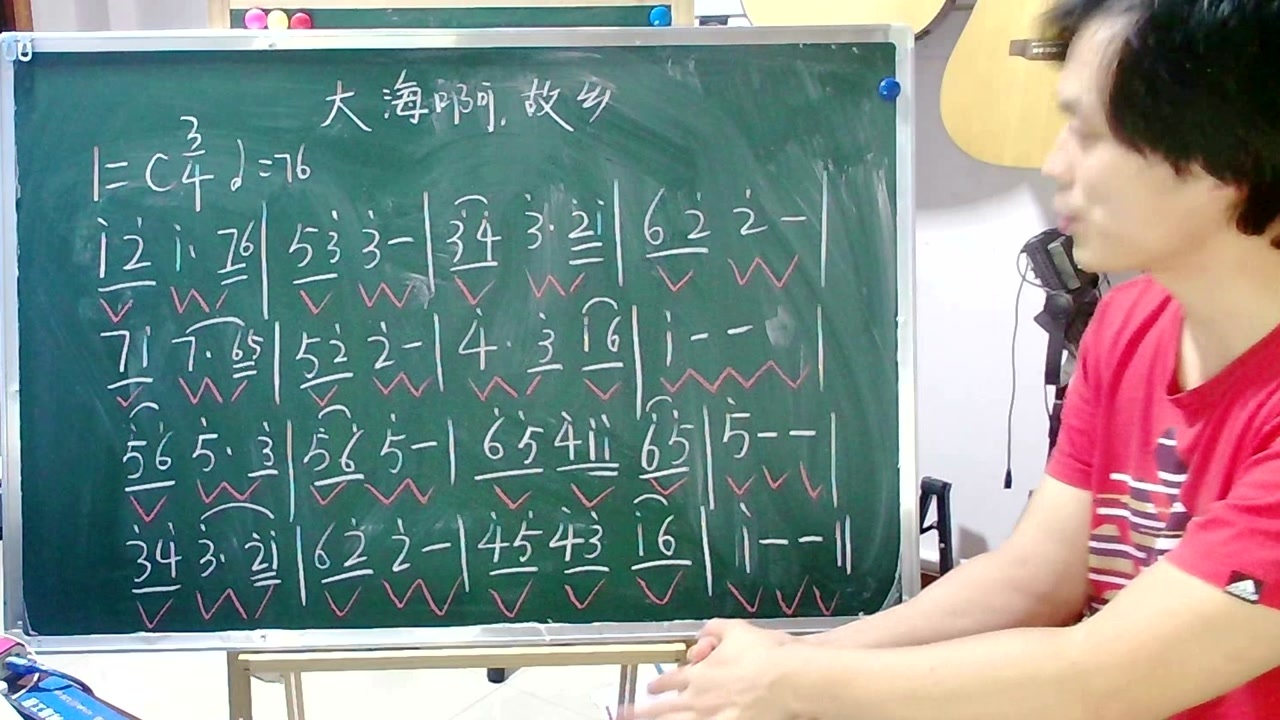 大海啊,故乡
1=C 3/4 ♩=76
i̲ 2̲̇ i· 7̳6̳ | 5̲ 3̲̇ 3̇ - | 3̲̇ 4̲̇ 3̇· 2̳̇ i̳ | 6̲ 2̲̇ 2̇ - |
7̲ i̲ 7· 6̳5̳ | 5̲ 2̲̇ 2̇ - | 4̇· 3̲̇ i̲ 6̲ | i - - |
5̲̇ 6̲̇ 5̇· 3̲̇ | 5̲̇ 6̲̇ 5̇ - | 6̲̇ 5̲̇ 4̲̇ i̳ i̳ 6̲̇ 5̲̇ | 5̇ - - |
3̲̇ 4̲̇ 3̇· 2̳̇ i̳ | 6̲ 2̲̇ 2̇ - | 4̲̇ 5̲̇ 4̲̇ 3̲̇ i̲ 6̲ | i - - ‖